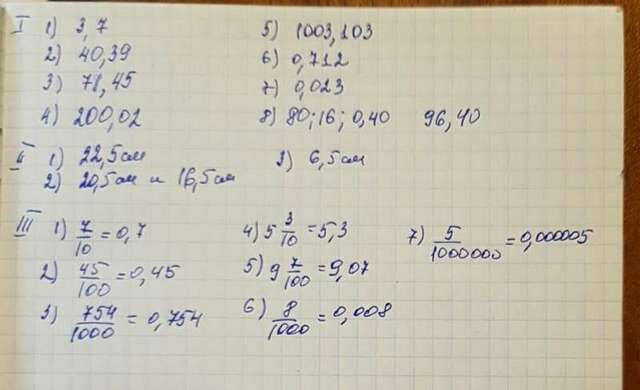 I 1) 3,7 5) 1003,103
2) 40,39 6) 0,712
3) 78,45 7) 0,023
4) 200,02 8) 80; 16; 0,40 96,40
II 1) 22,5 см 3) 6,5 см
2) 20,5 см и 16,5 см
III 1) 7/10 = 0,7 4) 5 3/10 = 5,3 7) 5/1000000 = 0,000005
2) 45/100 = 0,45 5) 9 7/100 = 9,07
3) 754/1000 = 0,754 6) 8/1000 = 0,008